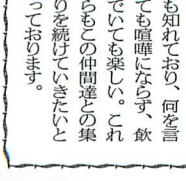 も知れており、何を言
ても喧嘩にならず、飲
でいても楽しい。これ
らもこの仲間達との集
りを続けていきたいと
っております。